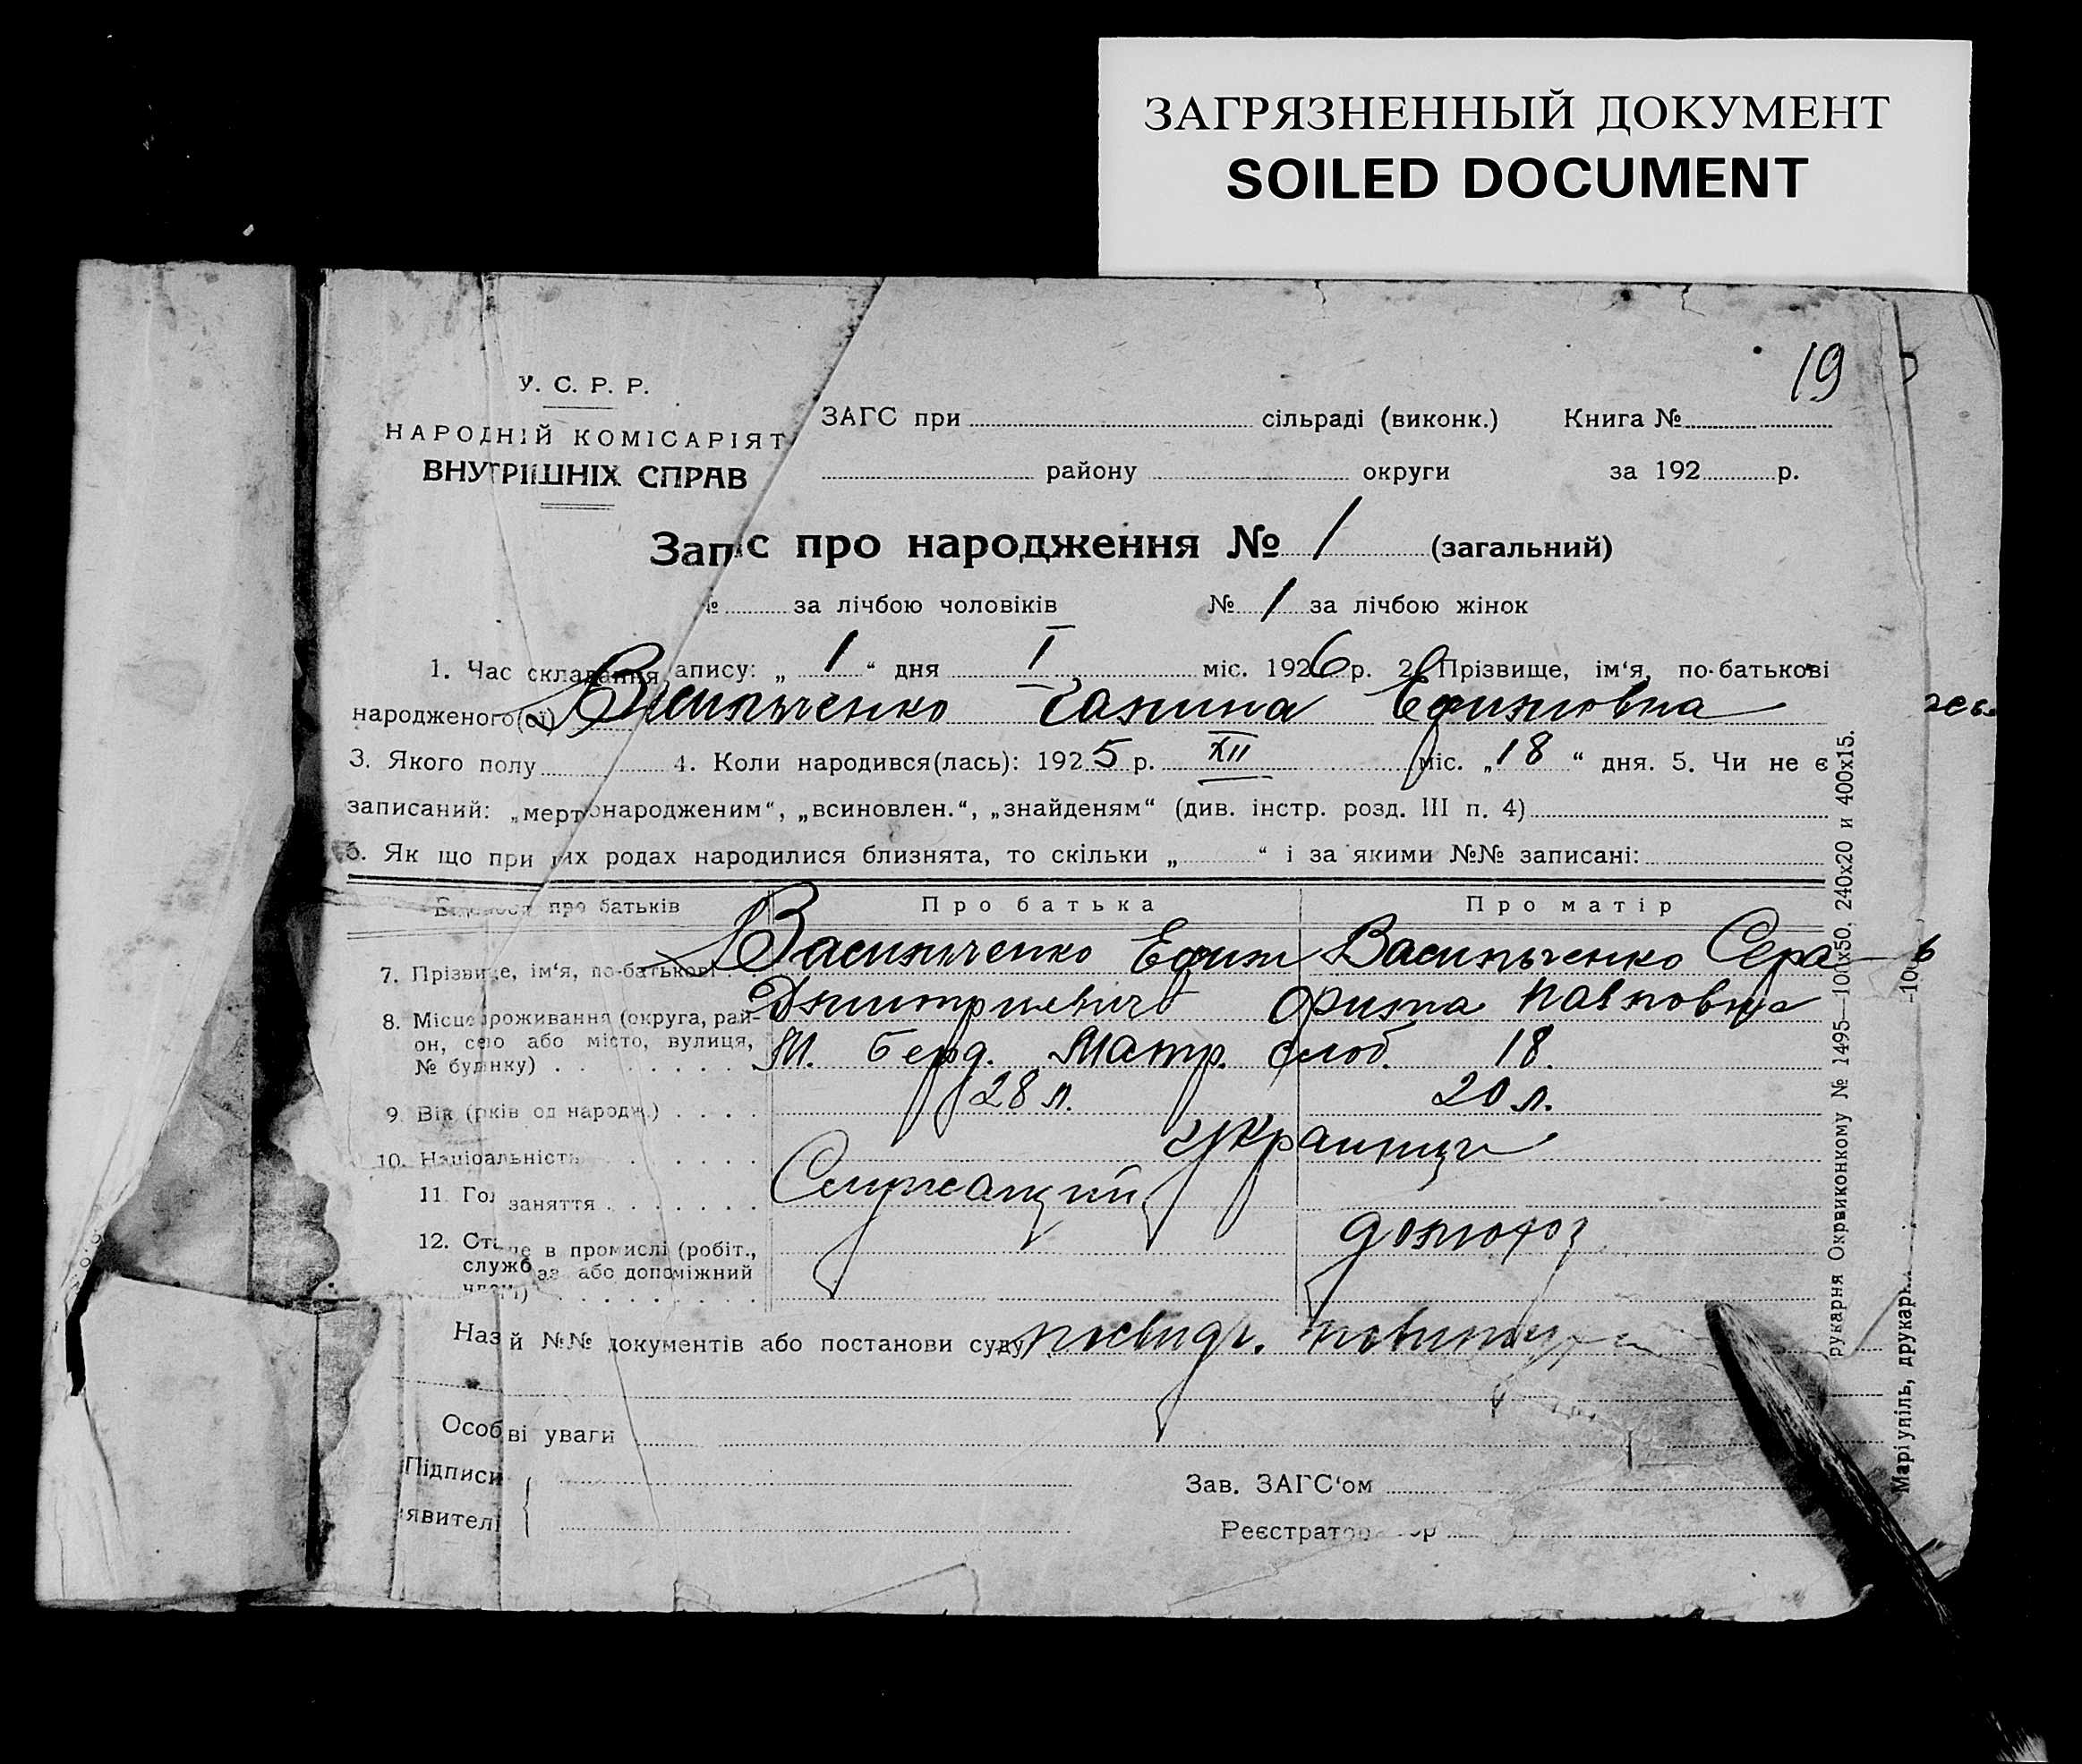 ЗАГРЯЗНЕННЫЙ ДОКУМЕНТ
SOILED DOCUMENT
19
У. С. Р. Р.
НАРОДНІЙ КОМІСАРІЯТ
ВНУТРІШНІХ СПРАВ
ЗАГС при сільраді (виконк.) Книга №
району округи за 192 р.
Запис про народження № 1 (загальний)
№ за лічбою чоловіків № 1 за лічбою жінок
1. Час складання запису: „ 1 “ дня I міс. 1926 р. 2. Прізвище, ім‘я, по-батькові
народженого(ої) Васильченко Галина Ефимовна
3. Якого полу 4. Коли народився(лась): 1925 р. XII міс. „ 18 “ дня. 5. Чи не є
записаний: „мертвонародженим“, „всиновлен.“, „знайденям“ (див. інстр. розд. III п. 4)
6. Як що при цих родах народилися близнята, то скільки „ “ і за якими №№ записані:
Відомості про батьків Про батька Про матір
7. Прізвище, ім‘я, по-батькові Васильченко Ефим Васильченко Сера-
Дмитриевич фима Павловна
8. Місце проживання (округа, рай-
он, село або місто, вулиця,
№ будинку) М. Берд. Матр. слоб. 18.
9. Вік (років од народж.) 28 л. 20 л.
10. Національність украинцы
11. Гол заняття Служащий
12. Стане в промислі (робіт.,
служб або допоміжний
член) домохоз
Наз й №№ документів або постанови суду
Особ ві уваги
Підписи
явителі
Зав. ЗАГС‘ом
Реєстратор
рукарня Окрвиконкому № 1495—100х50, 240х20 и 400х15.
Маріупіль, друкарн